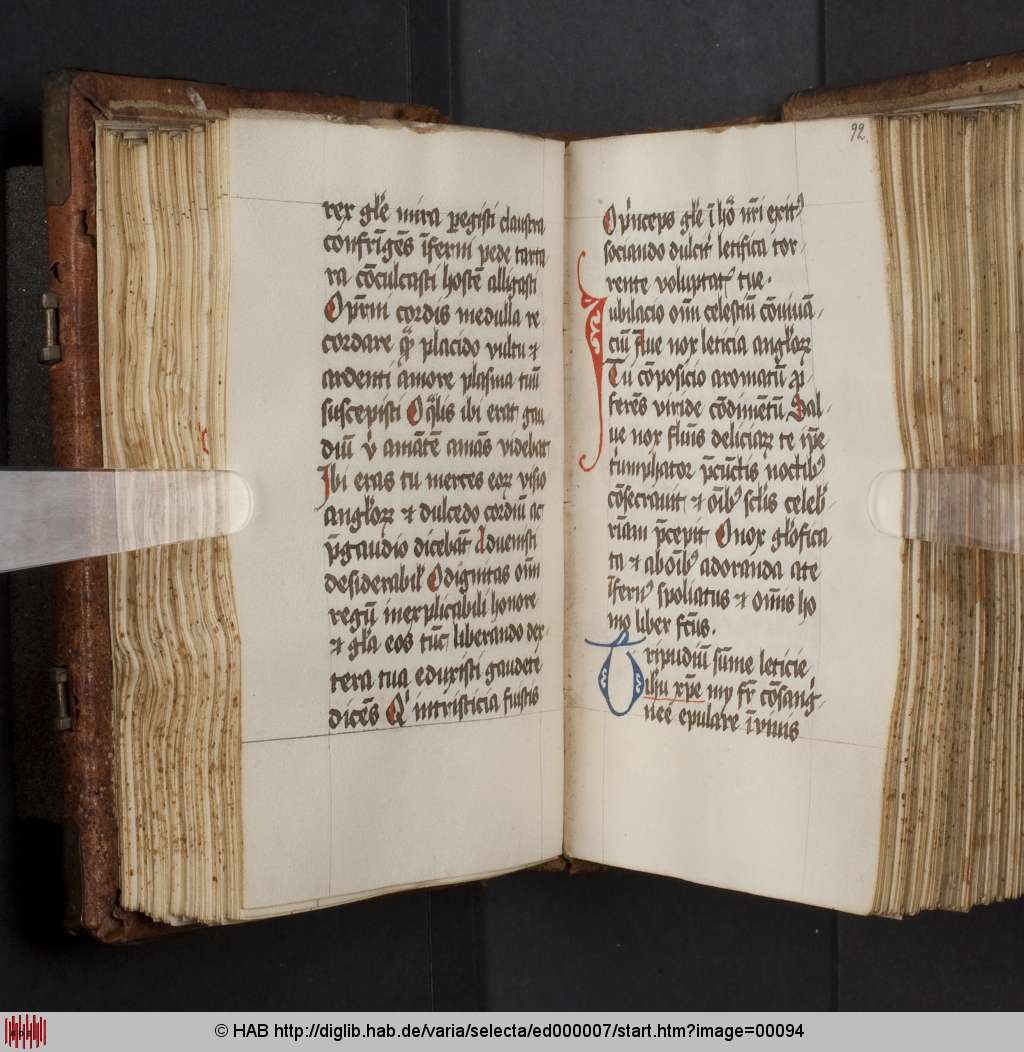 rex gl̄e mira ꝑegisti claustra
confrīgēs īferni pede tarta
ra cōculcasti hostē alligasti
cordis medulla re
cordare placido vultu ⁊
ardenti amore plasma tuū
suscepisti O q̄lis ibi erat gau
diū amātē amās videbat
Ibi eras tu merces eoꝝ visio
angl̓oꝝ ⁊ dulcedo cordiū ac
p̄gaudio dicebāt Aduenisti
desiderabil̓ O dignitas oīm
regū inexplicabili honore
⁊ gl̄a eos tūc liberando dex
tera tua eduxisti gaudete
dicēs intristicia fuistis
92.
O p̓nceps gl̄e ī hō nr̄i exitꝰ
sociando dulcit̓ letifica tor-
rente voluptat̓ tue.
Iubilacio oīm celestiū cōiuiuā-
ciū Aue nox leticia angl̓oꝝ
Tu cōposicio aromatū
ferēs viride cōdimētū Sal-
ue nox fluēs deliciaꝝ te ip̄e
t̓umphator p̄cūctis noctibꝰ
cōsecrauit ⁊ oībꝰ sclīs celeb̓-
p̄cepit O nox gl̓ifica
ta ⁊ aboībꝰ adoranda a te
īfernꝰ spoliatus ⁊ om̄is ho
mo liber fc̄us.
Tripudiū sūme leticie
ih̄u xp̄e mi fr̄ cōsang̓-
nee epulare
© HAB http://diglib.hab.de/varia/selecta/ed000007/start.htm?image=00094